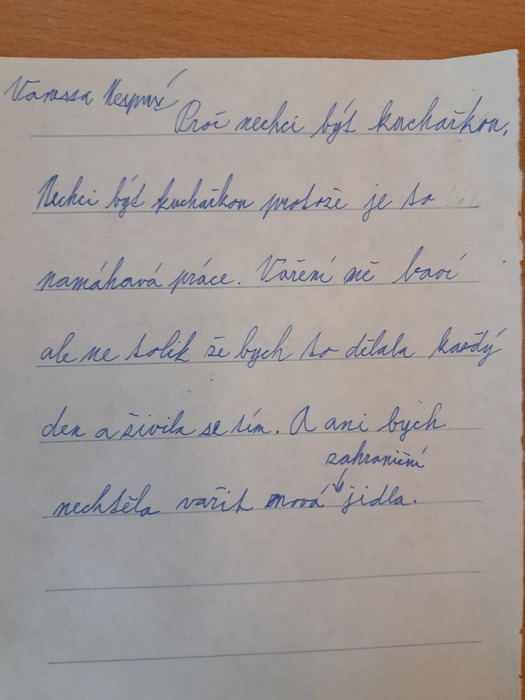 Vanessa
Proč nechci být kuchařkou.
Nechci být kuchařkou protože je to
namáhavá práce. Vaření mě baví
ale ne tolik že bych to dělala každý
den a živila se tím. A ani bych
zahraniční
nechtěla vařit nová jídla.